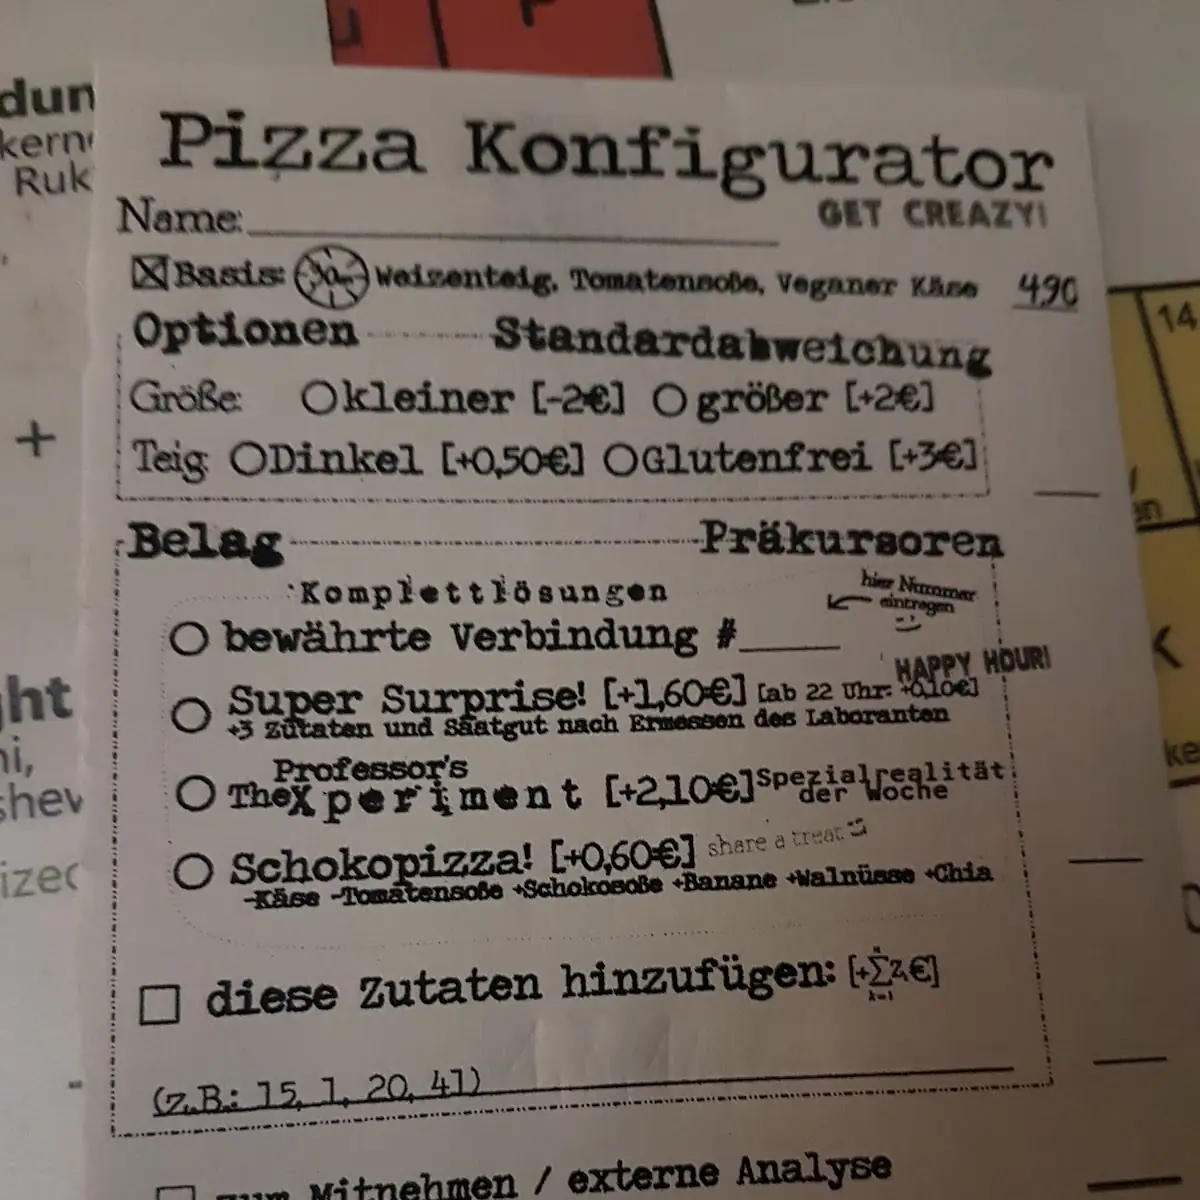 Pizza Konfigurator
GET CREAZY!
Name:
Basis: Weizenteig, Tomatensoße, Veganer Käse 490
Optionen Standardabweichung
Größe: kleiner [-2€] größer [+2€]
Teig: Dinkel [+0,50€] Glutenfrei [+3€]
Belag Präkursoren
Komplettlösungen
hier Nummer
eintragen
bewährte Verbindung #
HAPPY HOUR!
Super Surprise! [+1,60€] [ab 22 Uhr: +0,10€]
+3 Zutaten und Saatgut nach Ermessen des Laboranten
Professor's
The Xperiment [+2,10€] Spezialrealität
der Woche
Schokopizza! [+0,60€] share a treat
-Käse -Tomatensoße +Schokosoße +Banane +Walnüsse +Chia
diese Zutaten hinzufügen:
(z.B.: 15, 1, 20, 41)
zum Mitnehmen / externe Analyse
dun
kern
Ruk
+
ght
ni,
shev
14